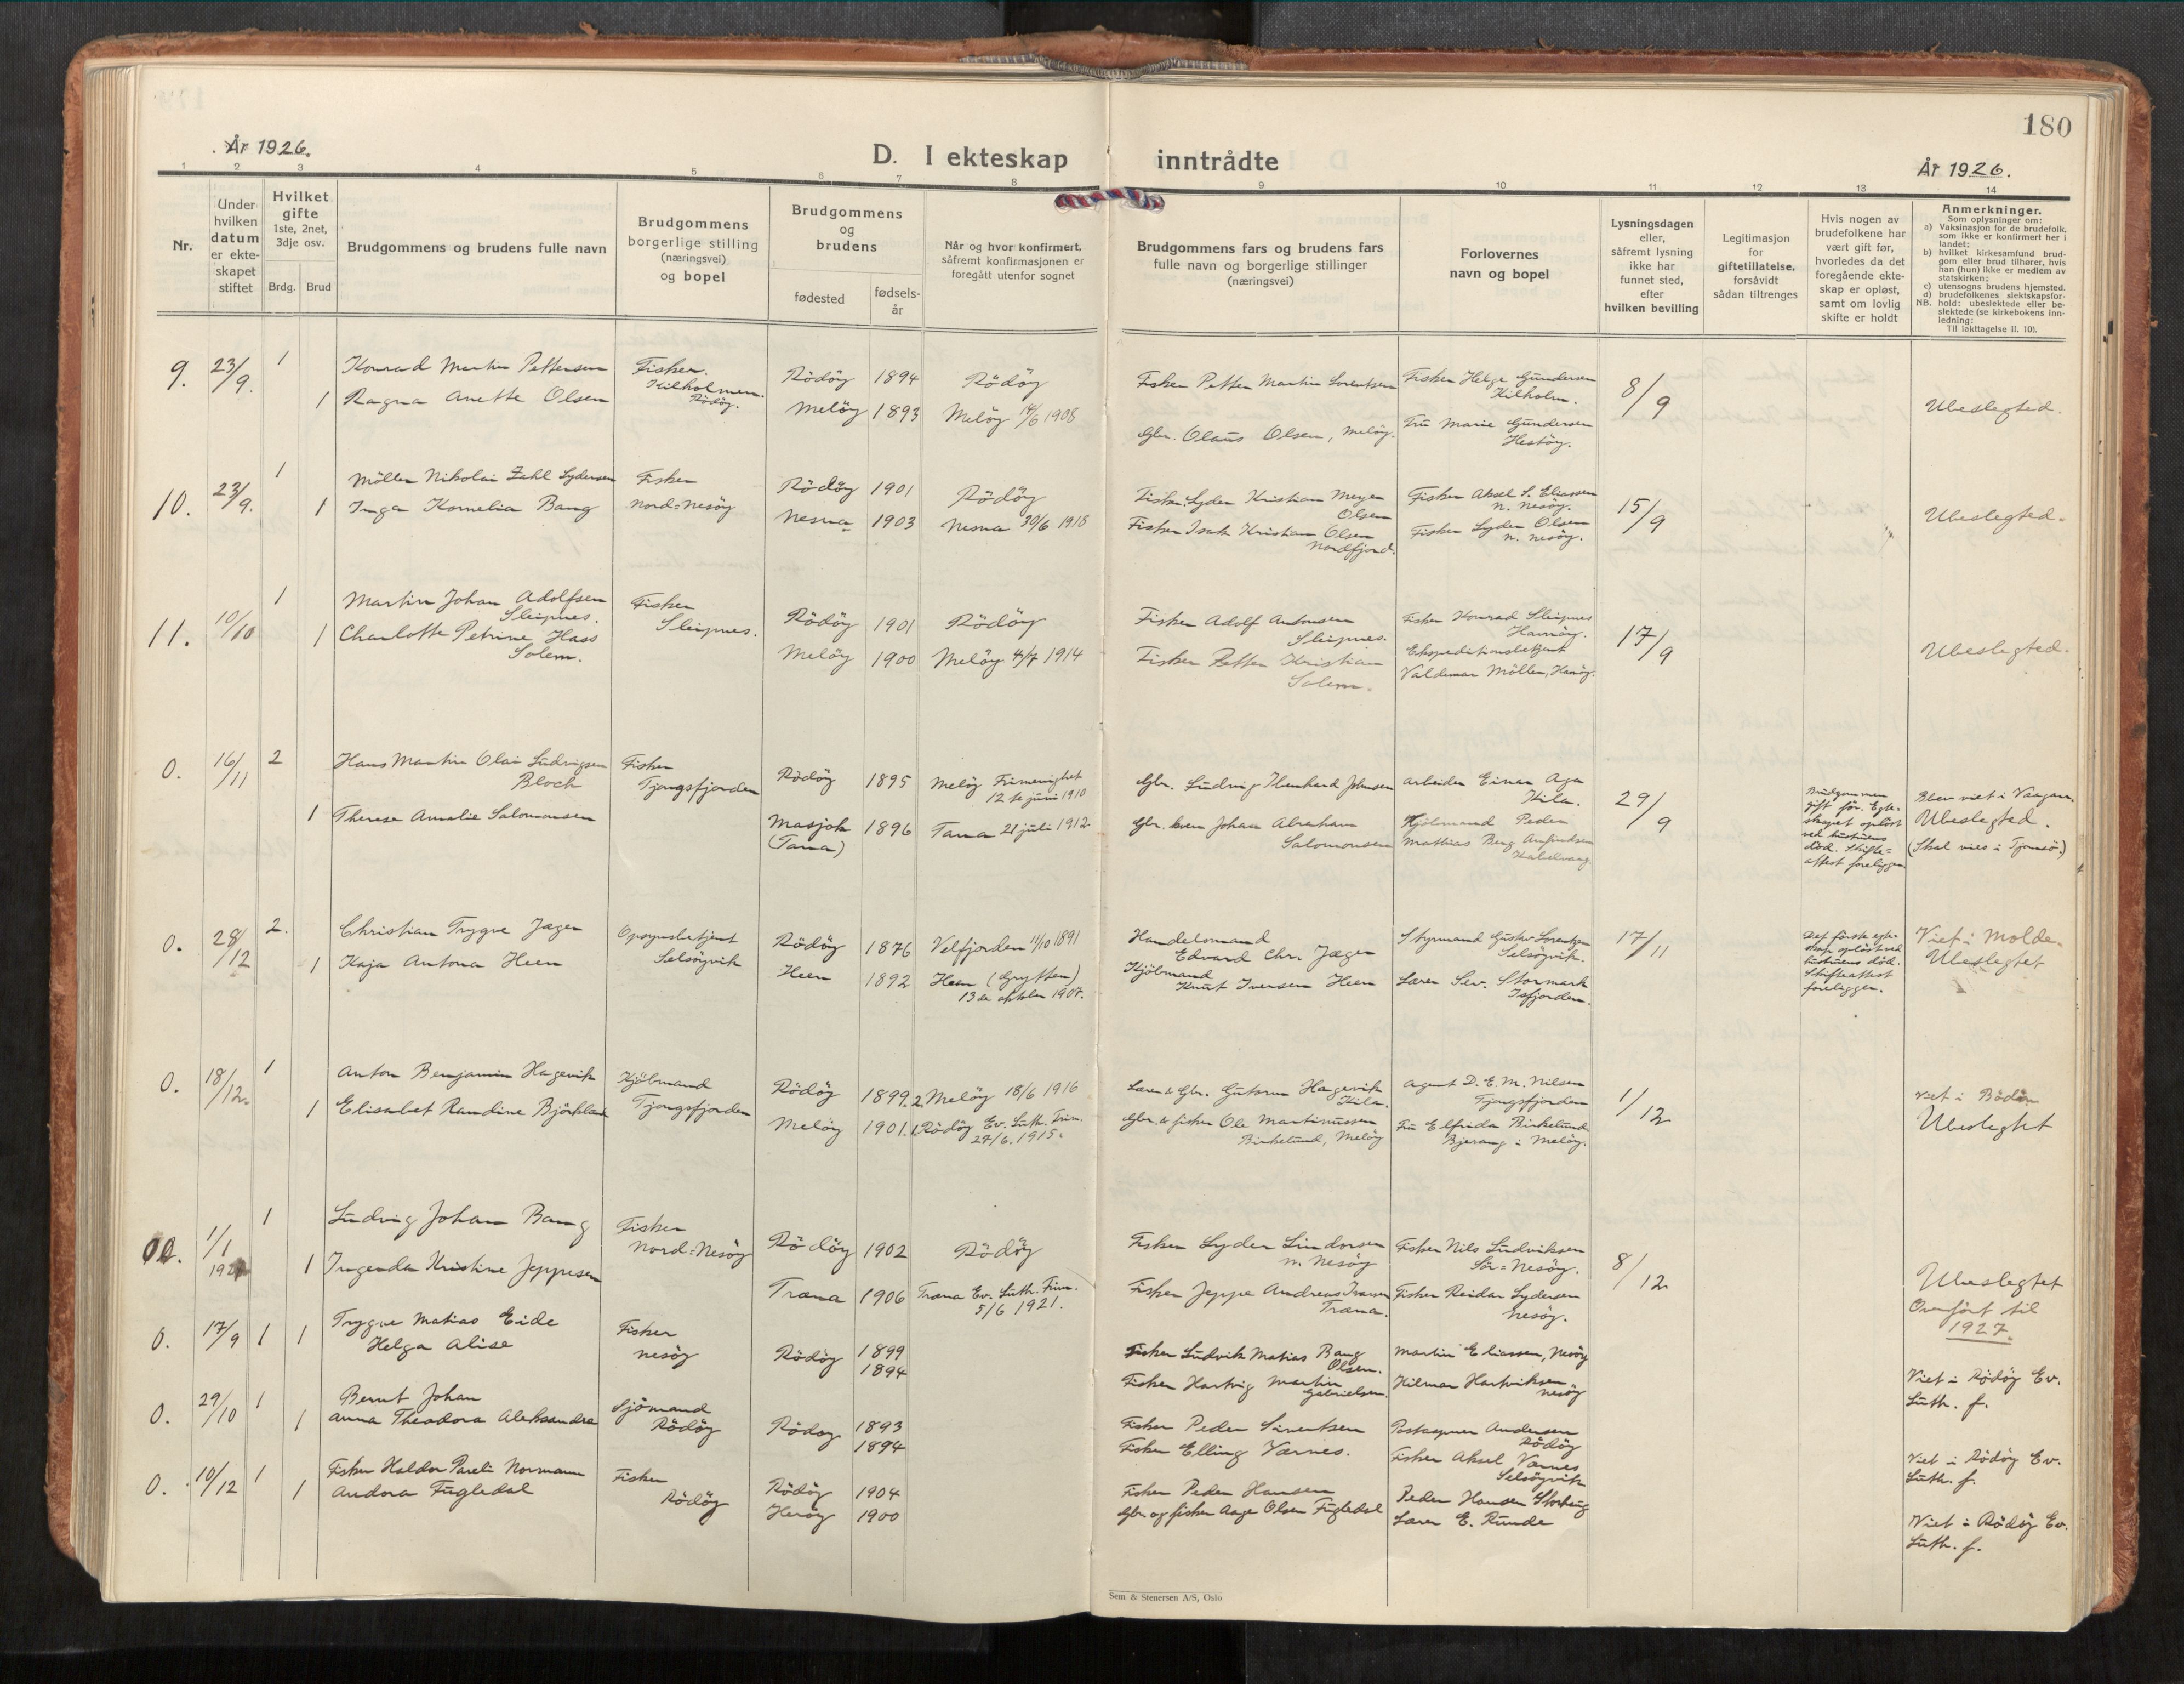 180
År 1926.
D. I ekteskap inntrådte
År 1926.
1 2 3 4 5 6 7 8 9 10 11 12 13 14
Nr.
Under
hvilken
datum
er ekte-
skapet
stiftet
Hvilket
gifte
1ste, 2net,
3dje osv.
Brdg. Brud
Brudgommens og brudens fulle navn
Brudgommens
borgerlige stilling
(næringsvei)
og bopel
Brudgommens
og
brudens
fødested
fødsels-
år
Når og hvor konfirmert,
såfremt konfirmasjonen er
foregått utenfor sognet
Brudgommens fars og brudens fars
fulle navn og borgerlige stillinger
(næringsvei)
Forlovernes
navn og bopel
Lysningsdagen
eller,
såfremt lysning
ikke har
funnet sted,
efter
hvilken bevilling
Legitimasjon
for
giftetillatelse,
forsåvidt
sådan tiltrenges
Hvis nogen av
brudefolkene har
vært gift før,
hvorledes da det
foregående ekte-
skap er opløst,
samt om lovlig
skifte er holdt
Anmerkninger.
Som oplysninger om:
a) Vaksinasjon for de brudefolk,
som ikke er konfirmert her i
landet;
b) hvilket kirkesamfund brud-
gom eller brud tilhører, hvis
han (hun) ikke er medlem av
statskirken;
c) utensogns brudens hjemsted.
d) brudefolkenes slektskapsfor-
NB. hold: ubeslektede eller be-
slektede (se kirkebokens inn-
ledning:
Til iakttagelse II. 10).
9. 23/9. 1
Konrad Martin Pettersen
1 Ragna Anette Olsen
Fisker.
Kilholmen.
Rödöy.
Rödöy 1894 Rödöy
Melöy 1893 Melöy 14/6 1908
Fisker Petter Martin Lorentsen
Gbr. Olaus Olsen, Melöy.
Fisker Helge Gundersen
Kilholm.
Fru Marie Gundersen
Hestöy.
8/9
Ubeslegted.
10. 23/9. 1
Möller Nikolai Zahl Lydersen
1 Inga Kornelia Bang
Fisker
Nord-Nesöy
Rödöy 1901 Rödöy
Nesna 1903 Nesna 30/6 1918
Fisker Lyder Kristian Meyer
Olsen
Fisker Isak Kristian Olsen
Nordfjord.
Fisker Aksel S. Eliassen
N. Nesöy.
Fisker Lyder Olsen
N. Nesöy.
15/9
Ubeslegted.
11. 10/10 1
Martin Johan Adolfsen
Sleipnes.
1 Charlotte Petrine Hass
Solem.
Fisker
Sleipnes.
Rödöy 1901 Rödöy
Melöy 1900 Melöy 4/7 1914
Fisker Adolf Antonsen
Sleipnes.
Fisker Petter Kristian
Solem.
Fisker Konrad Sleipnes
Havnöy.
Ekspeditionsbetjent
Valdemar Möller, Havnöy.
17/9
Ubeslegted.
0. 16/11 2
Hans Martin Olai Ludvigsen
Bloch
1 Therese Amalie Salomonsen
Fisker
Tjongsfjorden
Rödöy 1895 Melöy Frimenighet
12te juni 1910
Masjok 1896 Tana 21 juli 1912
(Tana)
Gbr. Ludvig Johnsen
Gbr. Johan Abraham
Salomonsen
Arbeider Einar Aga
Kila.
Kjöbmand Peder
Mathias Berg
Kabelvaag.
29/9
Brudgommen
gift för. Egte-
skapet oplöst
ved hustruens
död. Skifte-
attest foreligger
Blev viet i Vaagan.
Ubeslegted.
(Skal vies i Tromsö.)
0. 28/12 2.
Christian Trygve Jæger
1 Kaja Antona Heen
Opsynsbetjent
Selsöyvik
Rödöy 1876 Velfjorden 11/10 1891
Heen 1892 Heen (Grytten)
13de oktober 1907.
Handelsmand
Edvard Chr. Jæger
Kjöbmand
Knut Iversen Heen
Styrmand Gustav Lorentzen
Selsöyvik.
Lærer Sev. Stormark
Isfjorden.
17/11
Det förste egte-
skap oplöst ved
hustruens död.
Skifteattest
foreligger.
Viet i Molde.
Ubeslegtet
0. 18/12. 1
Anton Benjamin Hagevik
1 Elisabet Randine
Kjöbmand
Tjongsfjorden
Rödöy 1899. 2. Melöy 18/6 1916
Melöy 1901. 1. Rödöy Ev. Luth. Frim.
27/6. 1915.
Lærer & Gbr. Gutorm Hagevik
Kila.
Gbr. & fisker Ole Martinussen
Birkelund, Melöy
Agent D. E. M. Nilsen
Tjongsfjorden
Fru Elfrida Birkelund
Bjerang i Melöy.
1/12
Viet i Bodö
Ubeslegtet
1/1 1
Ludvig Johan Bang
1 Ingenda Kristine Jeppesen
Fisker
Nord-Nesöy
Rödöy 1902 Rödöy
Træna 1906 Træna Ev. Luth. Frim.
5/6 1921.
Fisker Lyder Lindorsen
N. Nesöy
Fisker Jeppe Andreas Ivarsen
Træna.
Fisker Nils Ludviksen
Sör-Nesöy.
Fisker Reidar Lydersen
Nesöy.
8/12
Ubeslegtet
Overfört til
1927.
0. 17/9 1 1
Trygve Matias Eide
Helga Alise
Fisker
Nesöy
Rödöy 1899
1894
Fisker Ludvik Matias Bang
Olsen.
Fisker Hartvig Martin
Gabrielsen.
Martin Eliassen, Nesöy
Hilmar Hartviksen
Nesöy
Viet i Rödöy Ev.
Luth. f.
0. 29/10 1
Bernt Johan
1 Anna Theodora Aleksandra
Sjömand
Rödöy
Rödöy 1893
1894
Fisker Peder Sivertsen
Fisker Elling Værnes.
Postaapner Andersen
Rödöy
Fisker Aksel Værnes
Selsöyvik
Viet i Rödöy Ev.
Luth. f.
0. 10/12 1
Fisker Haldor Pareli Normann
1 Andora Fugledal
Fisker
Rödöy
Rödöy 1904
Heröy 1900
Fisker Peder Hansen
Gbr. og fisker Aage Olsen Fugledal
Peder Hansen Storberg
Lærer E. Runde
Viet i Rödöy Ev.
Luth. f.
Sem & Stenersen A/S, Oslo